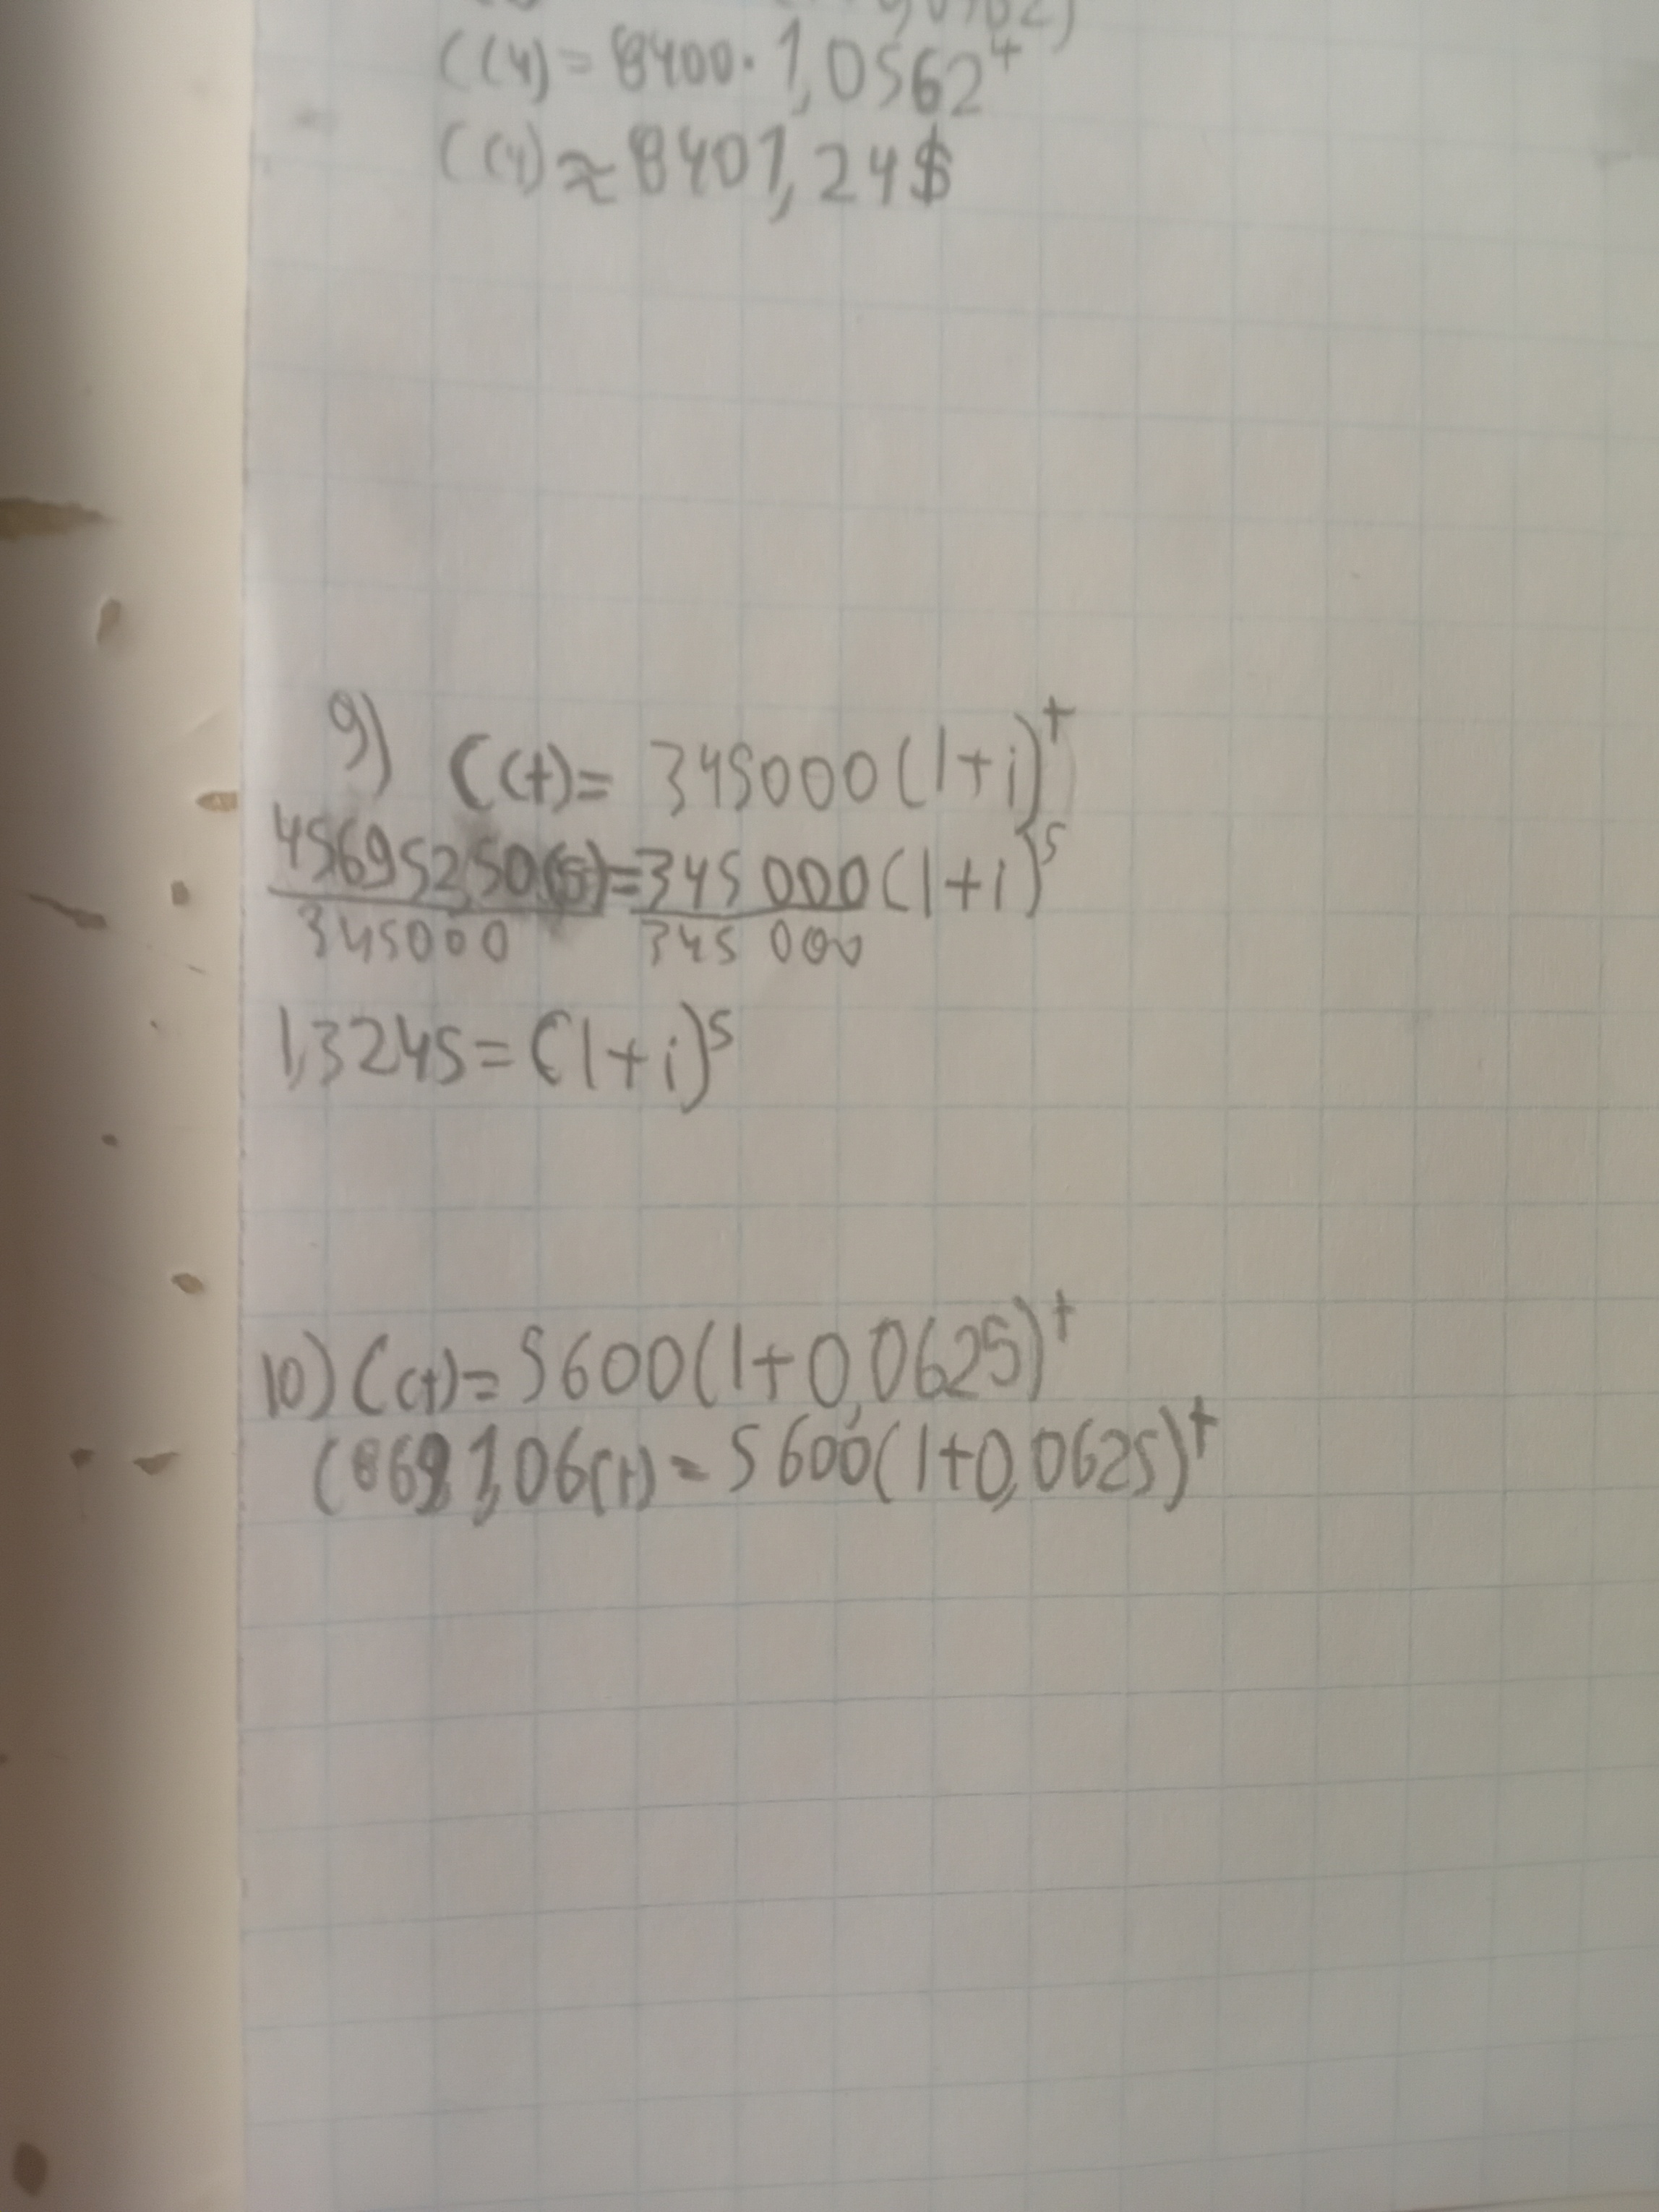 C(4) = 8400 · 1,0562⁴
C(4) ≈ 8401,24$
9) C(t) = 345000(1+i)ᵗ
456952,50(5) = 345 000(1+i)⁵
345000 345 000
1,3245 = (1+i)⁵
10) C(t) = 5600(1+0,0625)ᵗ
1,06(t) = 5600(1+0,0625)ᵗ